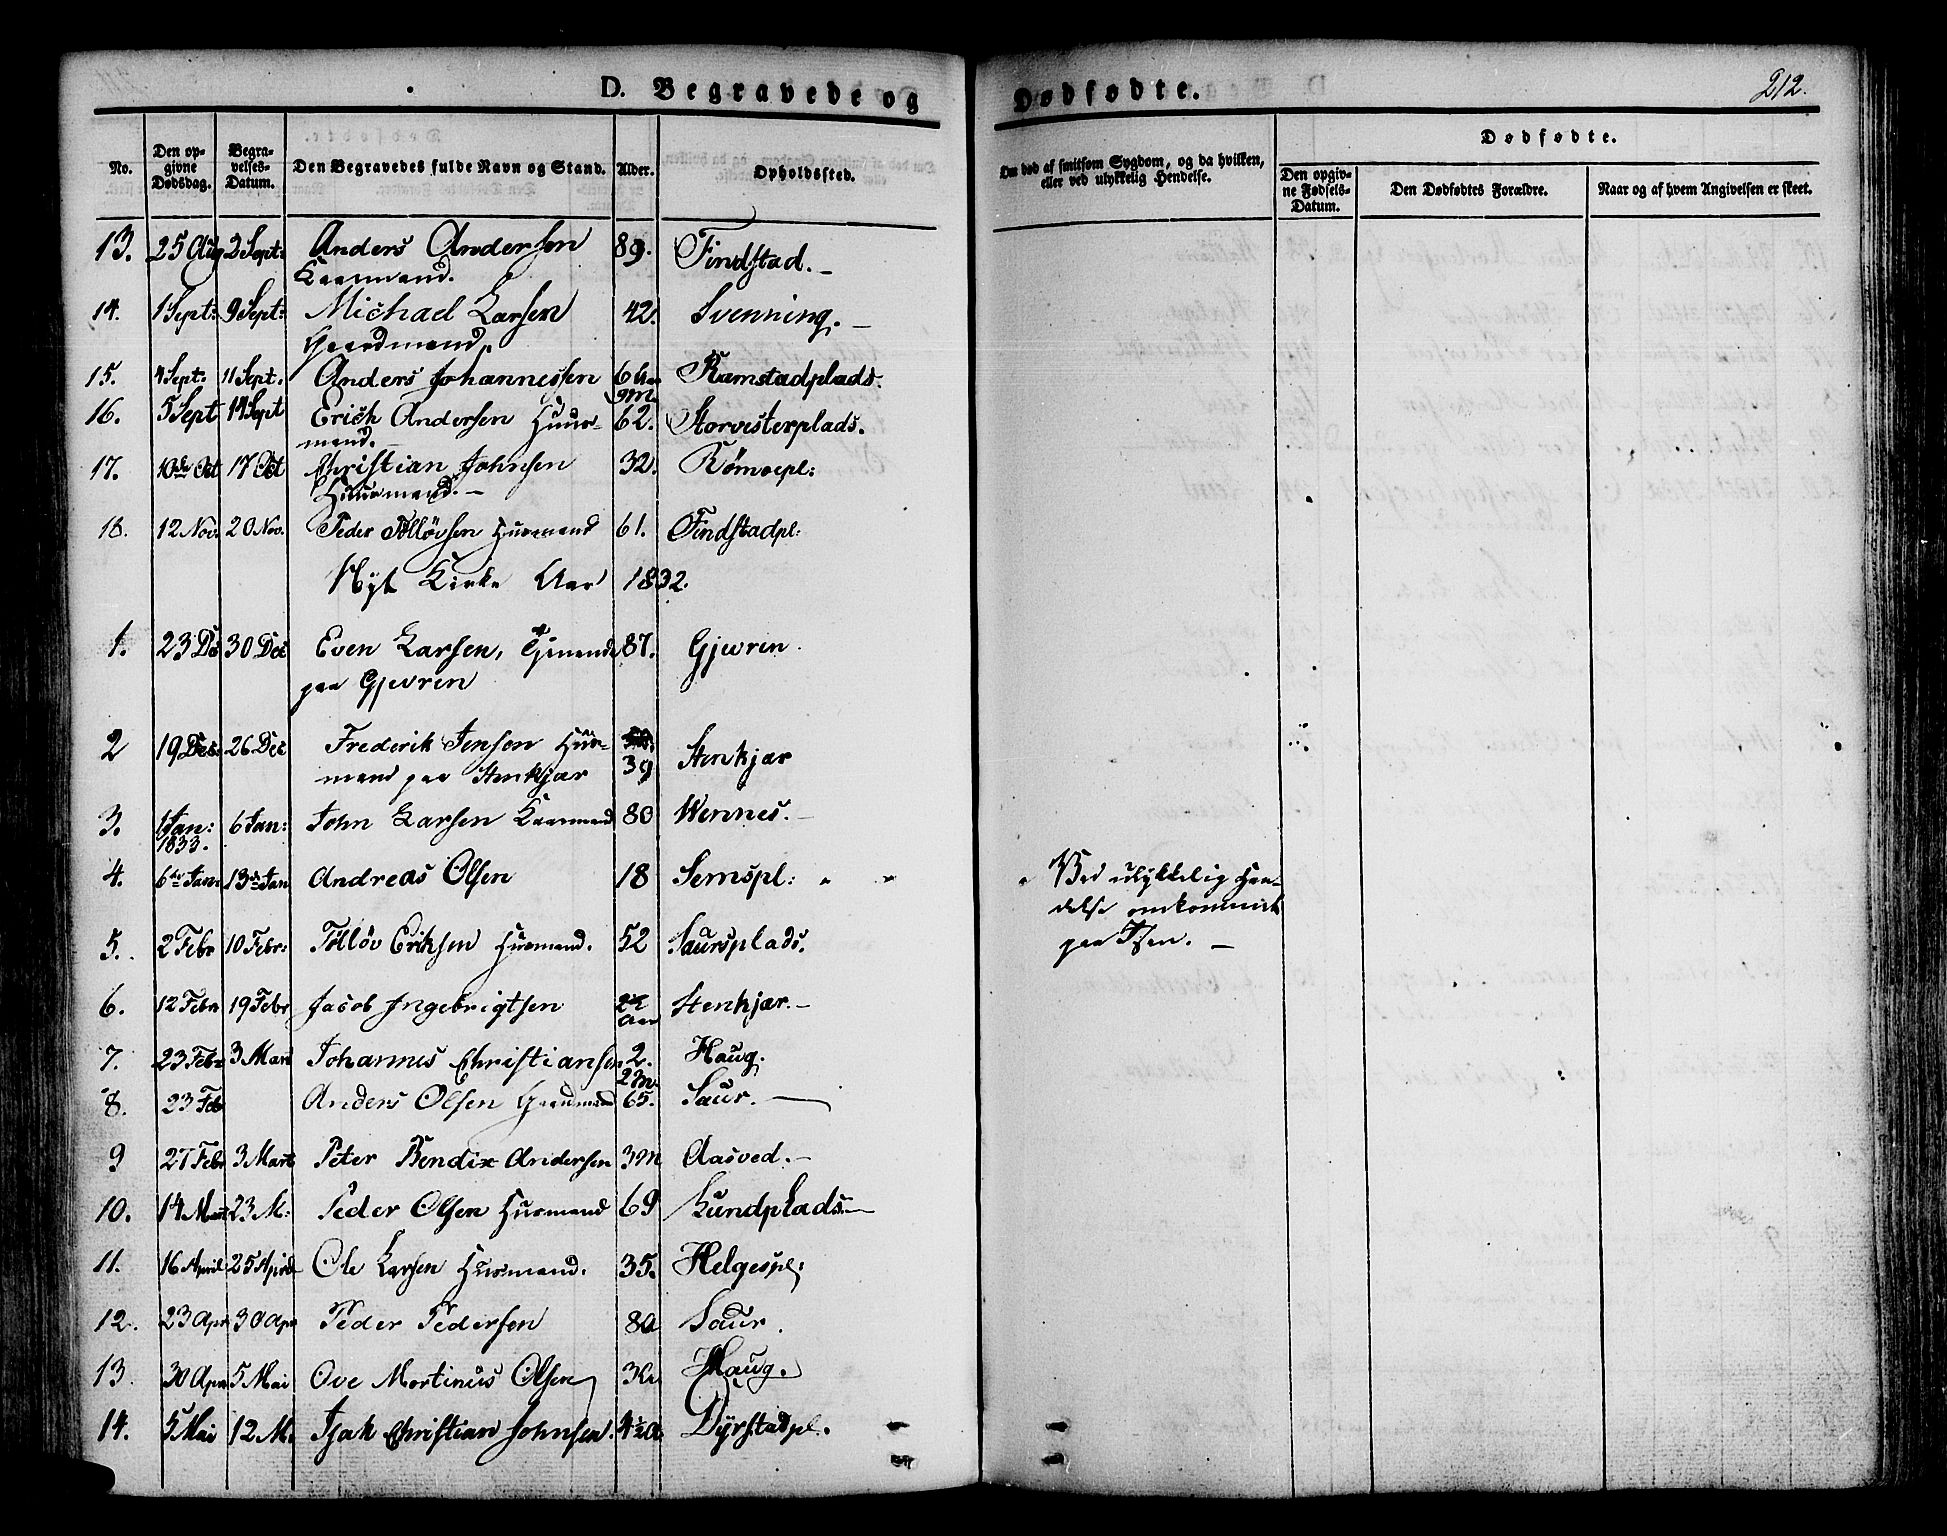 D. Begravede og Dødfødte. 212.
No. Den opgivne Dødsdag. Begravelses-Datum. Den Begravedes fulde Navn og Stand. Alder. Opholdssted. Om død af smitsom Sygdom, og da hvilken, eller ved ulykkelig Hendelse. Dødfødte. Den opgivne Fødsels-Datum. Den Dødfødtes Forældre. Naar og af hvem Angivelsen er skeet.
13. 25 Aug 2 Sept: Anders Andersen 89. Findstad.
Kaarmand.
14. 1 Sept: 9 Sept: Michael Larsen 42. Svenning.
Gaardmand.
15. 4 Sept. 11 Sept. Anders Johannessen 6 Aar 9 M Ramstadplads.
16. 5 Sept 14 Sept Erich Andersen Huus- 62. Storvesterplads.
mand.
17. 10de Oct 17 Oct Christian Johnsen 32.
Huusmand.
18. 12 Nov. 20 Nov. Peder Tølløvsen Husmand 61. Findstadpl:
Nyt Kirke Aar 1832.
1. 23 De 30 Dec Even Larsen, 87. Gjevren.
paa Gjevren
2 19 Dec. 26 Dec Frederik Jenson Huus- 39 Stenkjær
mand paa Stenkjær
3. 1 Jan: 1833. 6 Jan: John Larsen Kaarmand 80 Wennes.
4. 6te Jan: 13de Jan Andreas Olsen 18 Semspl: Ved ulykkelig Hen-
delse omkommet
paa Isen.
5. 2 Febr 10 Febr: Tølløv Eriksen Husmand. 52 Saursplads.
6. 12 Febr 19 Febr Jacob Ingebrigtsen Stenkjær.
7. 23 Febr 3 Mart Johannes Christiansen 2. 2 M. Haug.
8. 23 Feb Anders Olsen Gaardmand 65. Saur.
9 27 Febr 3 Mart Peter Bendix Andersen 3 M Aasved.
10. 14 Mart 23 M: Peder Olsen Husmand 69 Lundplads.
11. 16 April 25 April Ole Larsen Husmand. 35. Helgespl:
12. 23 Apr 30 Apr Peder Pedersen 80 Saur.
13. 30 Apr 5 Mai Ove Mortinus Olsen Haug.
14. 5 Mai 12 M. Isak Christian Johnsen. 4½ A Dyrstadpl.